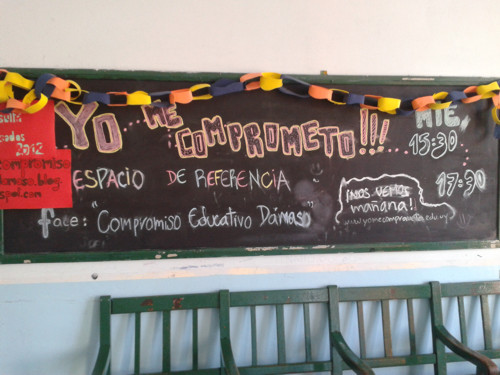 YO... ME COMPROMETO!!!...
MIE
15:30
17:30
ESPACIO DE REFERENCIA
face: "Compromiso Educativo Dámaso"
¡NOS VEMOS
mañana!
2012
compromiso
damaso.blog
spot.com